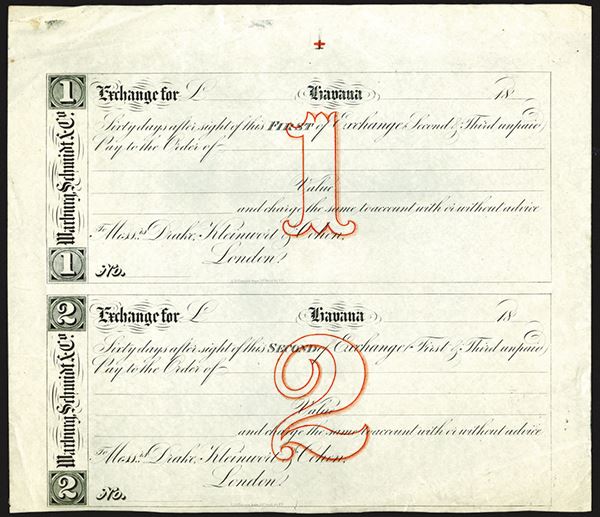 1
Exchange for £ Havana 18
Sixty days after sight of this FIRST of Exchange (Second & Third unpaid)
Pay to the Order of
Value
and charge the same to account with or without advice
To Mess.rs Drake, Kleinwort & Cohen,
London.
No.
1
Warburg, Schmidt & Co.
1
2
Exchange for £ Havana 18
Sixty days after sight of this SECOND of Exchange (First & Third unpaid)
Pay to the Order of
Value
and charge the same to account with or without advice
To Mess.rs Drake, Kleinwort & Cohen,
London.
No.
2
Warburg, Schmidt & Co.
2